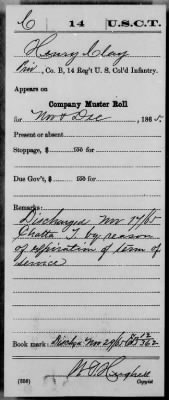 C 14 U.S.C.T.
Henry Clay
Priv, Co. B, 14 Reg't U. S. Col'd Infantry.
Appears on
Company Muster Roll
for Nov & Dec, 1865.
Present or absent
Stoppage, $ 100 for
Due Gov't, $ 100 for
Remarks:
Discharged Nov 27/65
Chatta T. by reason
of expiration of term of
service
Book mark: Dischgd Nov 27/65
(358)
Copyist